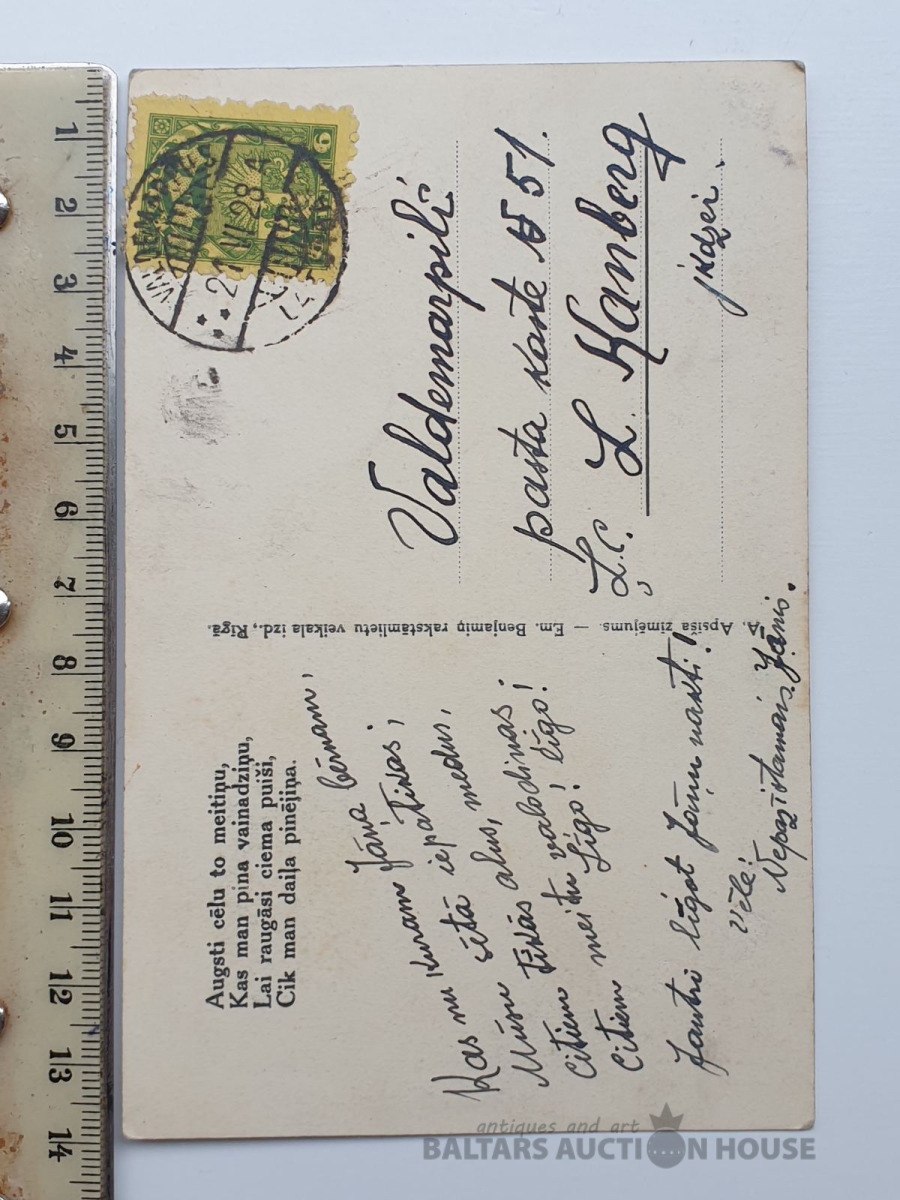 Augsti cēlu to meitiņu,
Kas man piņa vainadziņu,
Lai raugāsi ciema puiši,
Cik man daiļa pinējiņa.
Kas nu kuram Jāņa bērnam,
sētā iepatikās;
Mūsu alus, medus,
Citiem tikās
Citiem meitu valodiņas;
Līgo! līgo!
Jautri līgot Jāņu nakti!
Vēlē:
Nepazīstamais Jānis.
Apsīša zīmējums. — Em. Benjamiņ rakstāmlietu veikala izd., Rīgā.
Valdemarpilī
pasta kaste № 51.
Ļ.C. L. Kanberg
jkdzei.
VI 28
6
1 2 3 4 5 6 7 8 9 10 11 12 13 14
antiques and art
BALTARS AUCTION HOUSE